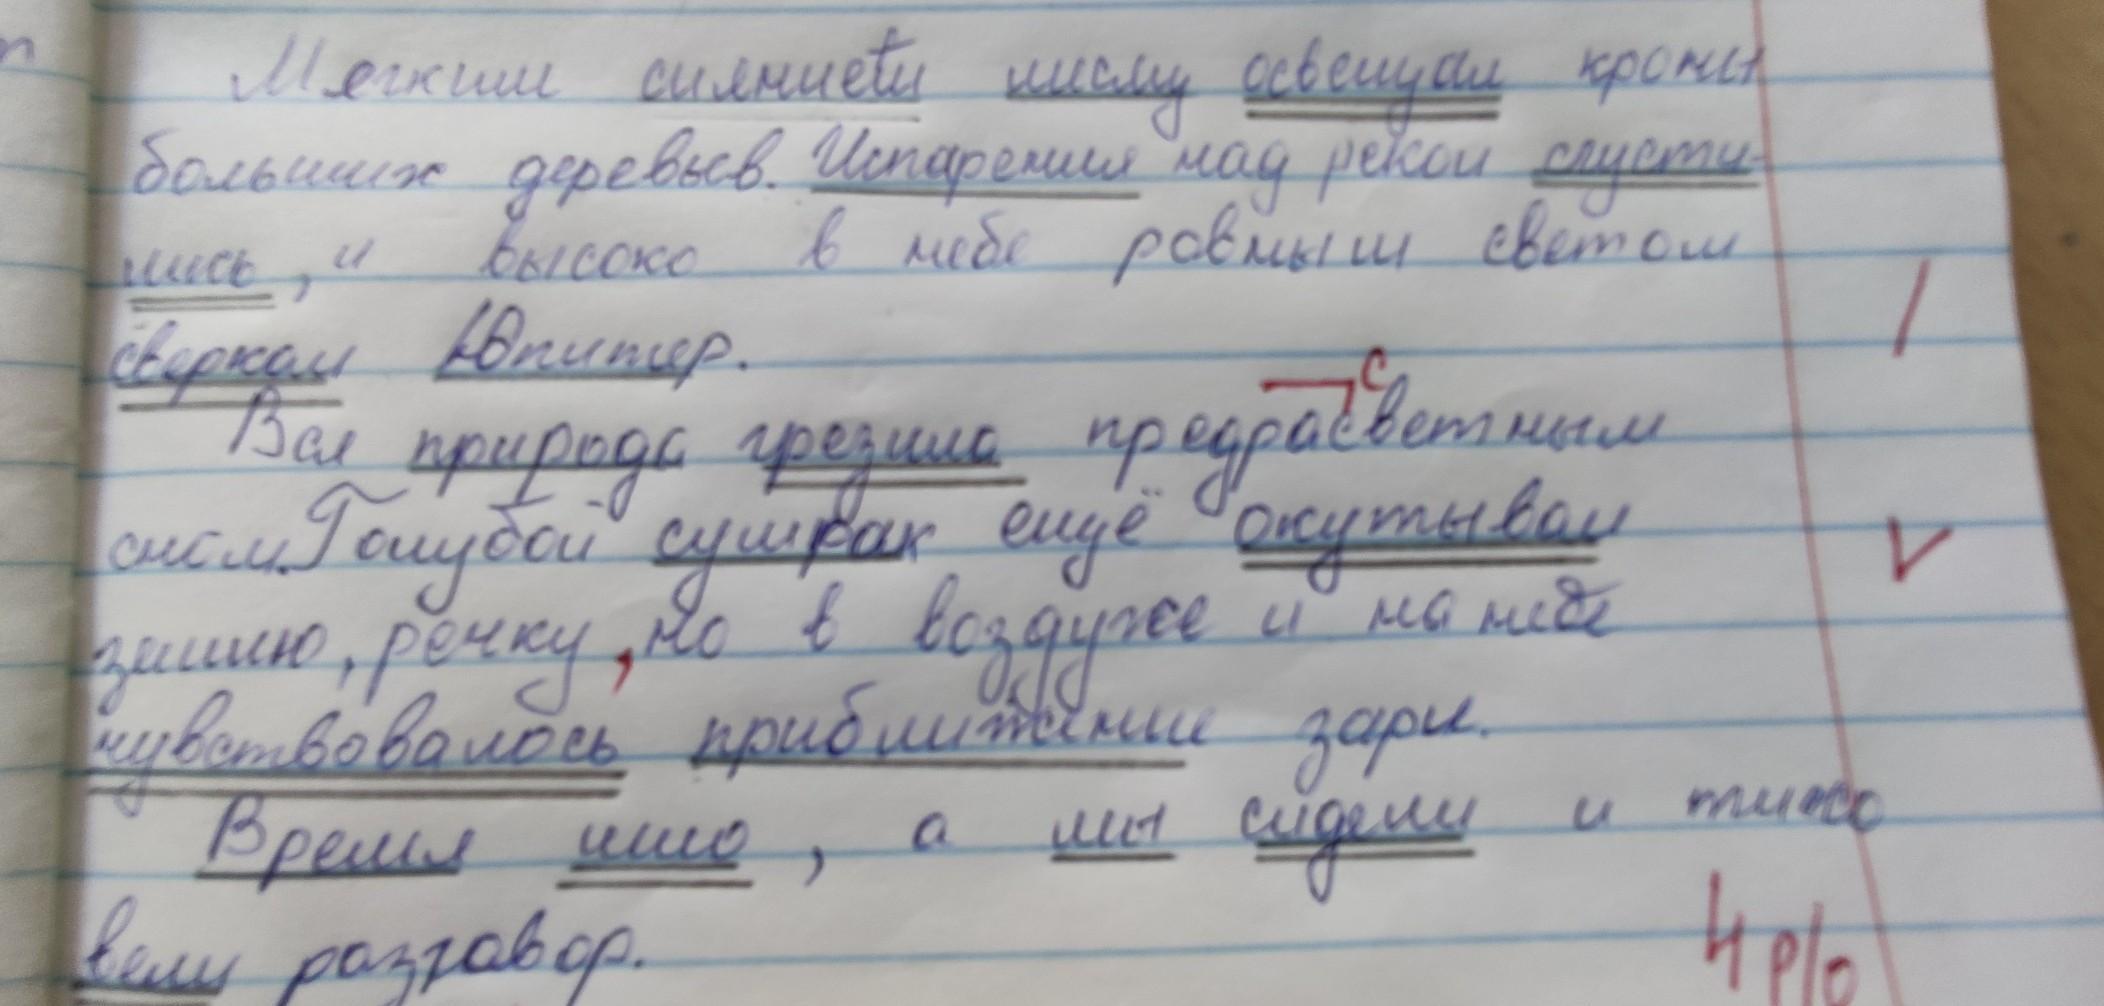 Мягким сиянием месяц освещал кроны
больших деревьев. Испарения над рекой спусти-
лись, и высоко в небе ровным светом
сверкал Юпитер.
с
Вся природа грезила предрасветным
сном. Голубой сумрак ещё окутывал
землю, речку, но в воздухе и на небе
чувствовалось приближение зари.
Время шло, а мы сидели и тихо
вели разговор.
4 р/о